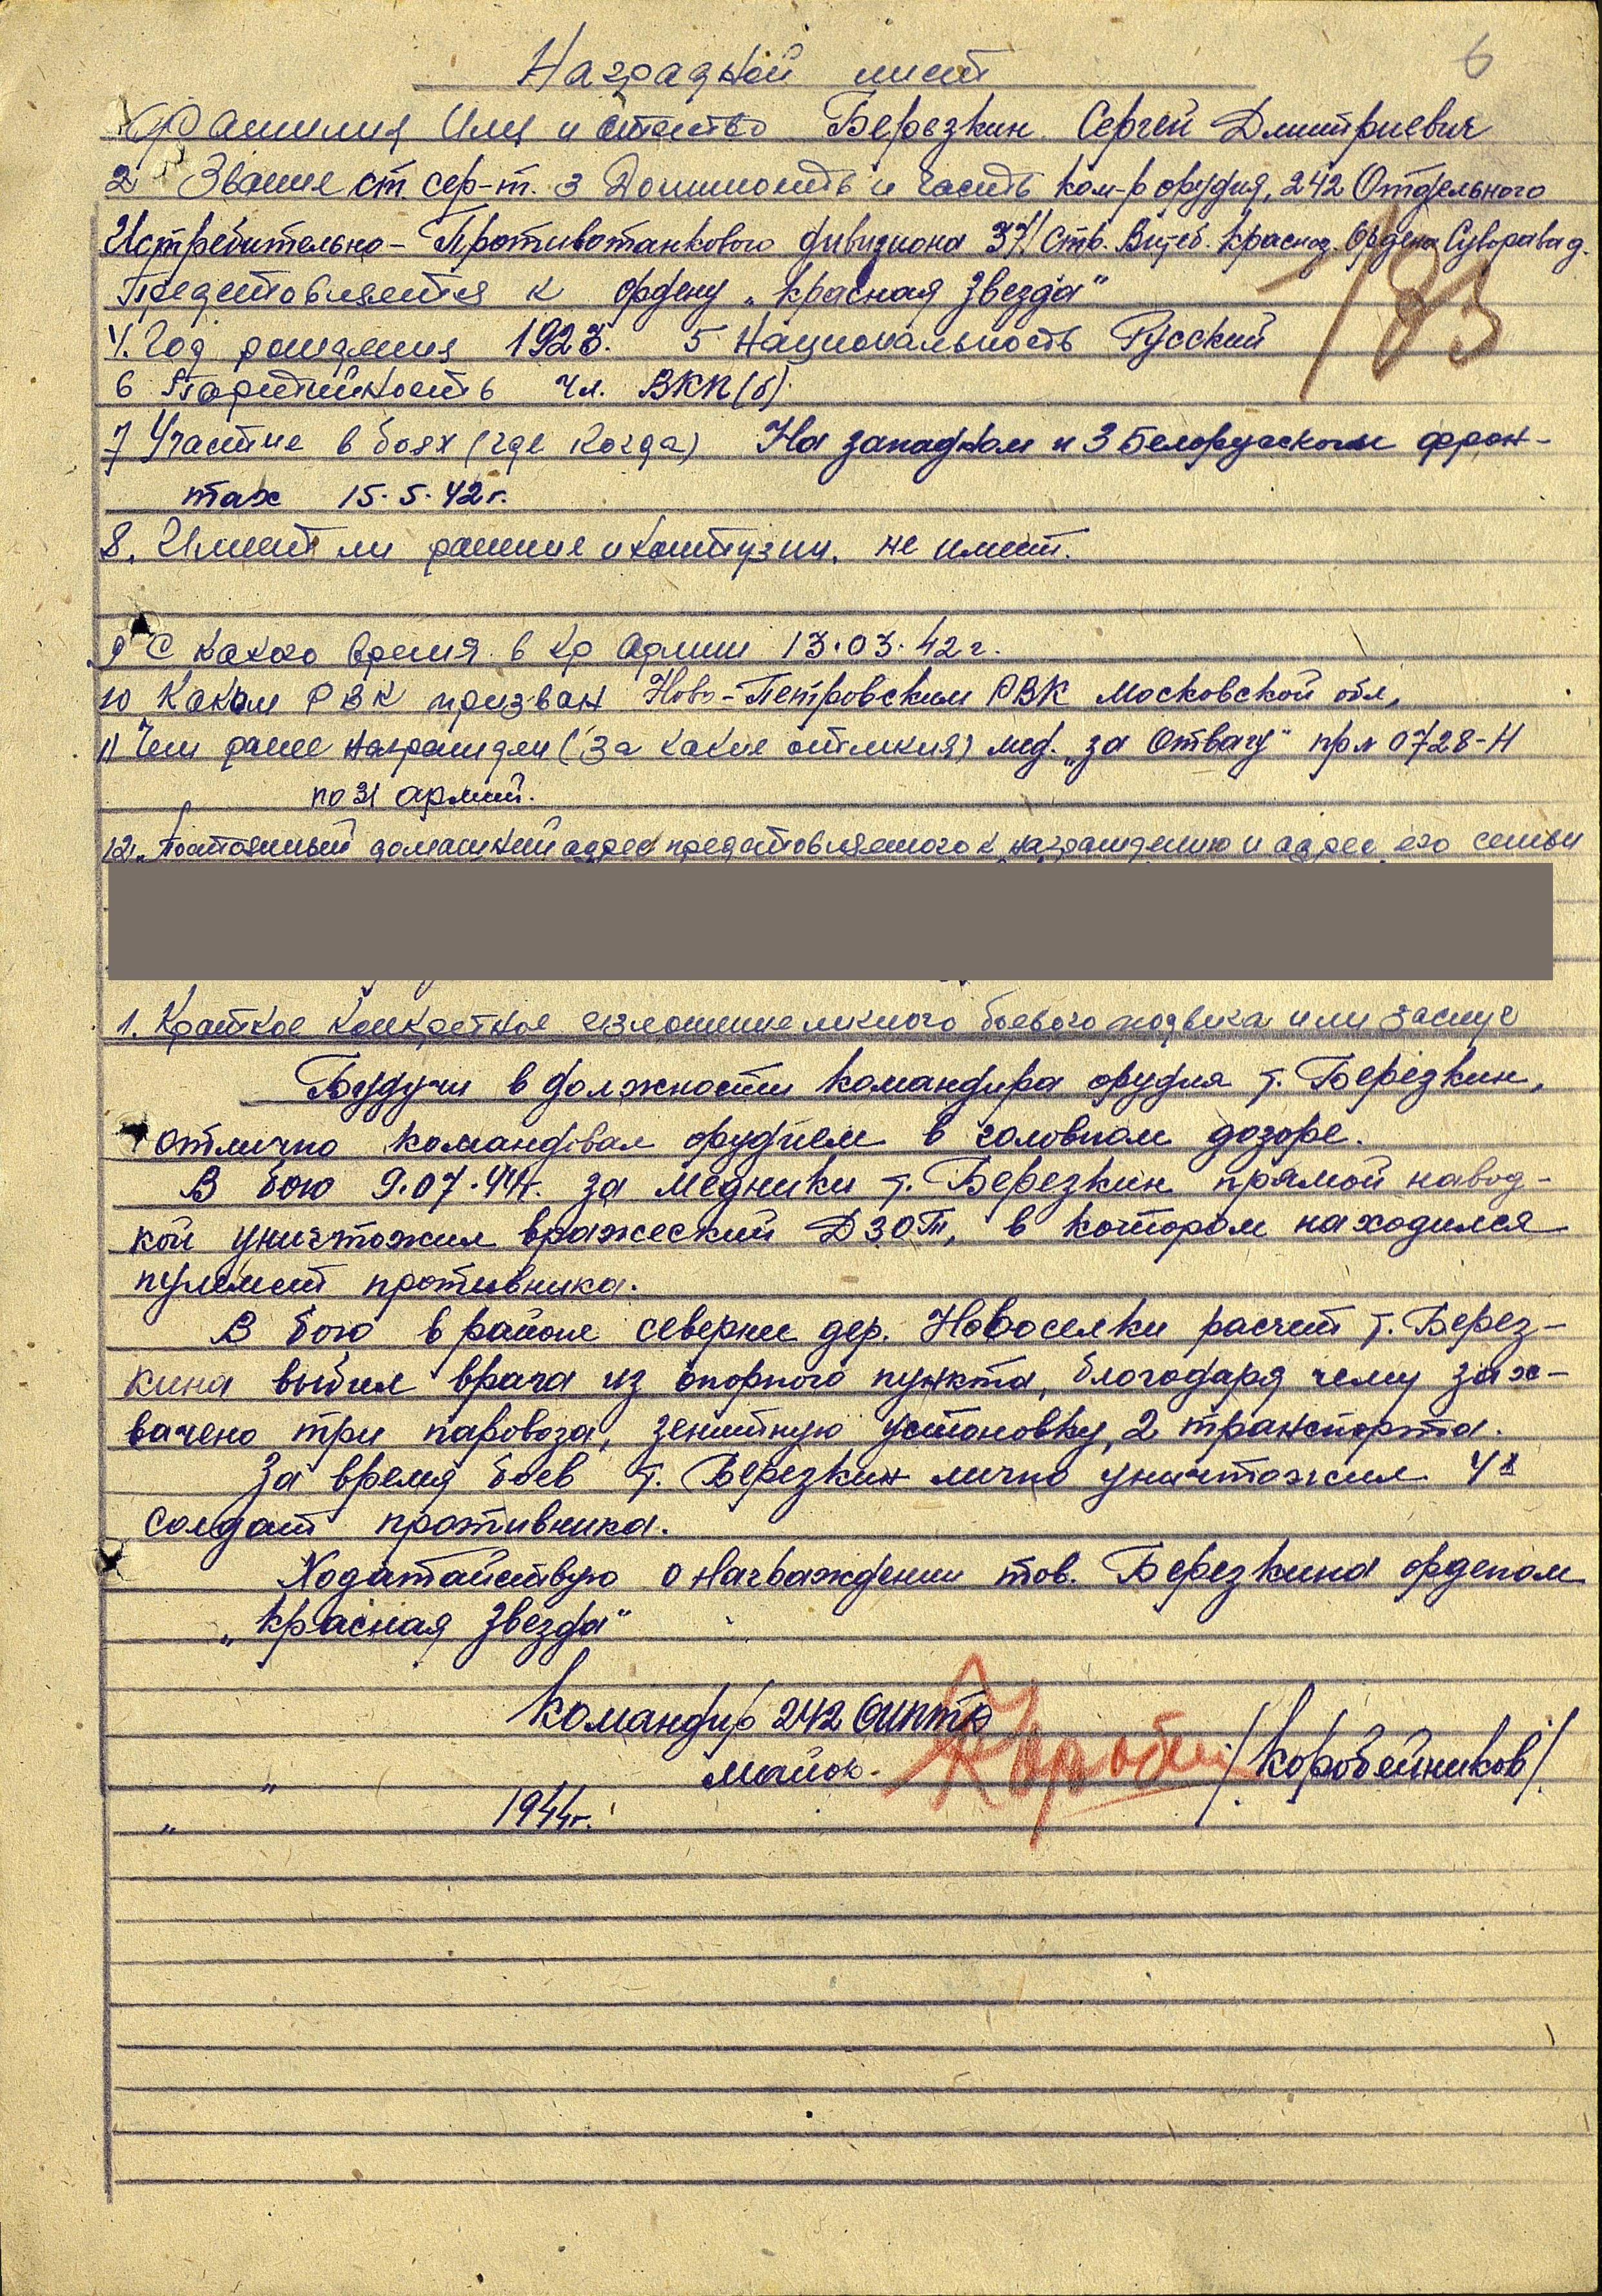 6
Наградной лист
Фамилия Имя и отчество Березкин Сергей Дмитриевич
2 Звание ст. сер-т. 3 Должность и часть ком-р орудия, 242 Отдельного
Истребительно-Противотанкового дивизиона 371 Стр. Витеб. Красноз. Ордена Суворова д.
Представляется к ордену „Красная Звезда"
183
4. Год рождения 1923. 5 Национальность Русский
6 Партийность чл. ВКП(б).
7 Участие в боях (где когда) На западном и 3 Белорусском фрон-
тах 15.5.42г.
8. Имеет ли ранение и контузии, не имеет.
9 С какого время в Кр Армии 13.03.42г.
10 Каким РВК призван Ново-Петровским РВК Московской обл,
11 Чем ранее награжден (за какие отличия) мед. „за Отвагу" пр № 0728-Н
по 31 армии.
12. Постоянный домашний адрес представляемого к награждению и адрес его семьи
1. Краткое конкретное изложение личного боевого подвига или заслуг
Будучи в должности командира орудия т. Березкин,
отлично командовал орудием в головном дозоре.
В бою 9.07.44г. за Медники т. Березкин прямой навод-
кой уничтожил вражеский ДЗОТ, в котором находился
пулемет противника.
В бою в районе севернее дер. Новоселки расчет т. Берез-
кина выбил врага из опорного пункта, благодаря чему зах-
вачено три паровоза, зенитную установку, 2 транспорта.
За время боев т. Березкин лично уничтожил
солдат противника.
Ходатайствую о награждении тов. Березкина орденом
„Красная Звезда"
Командир 242 ОИПТД
майор /Коробейников/.
„ „ 1944г.